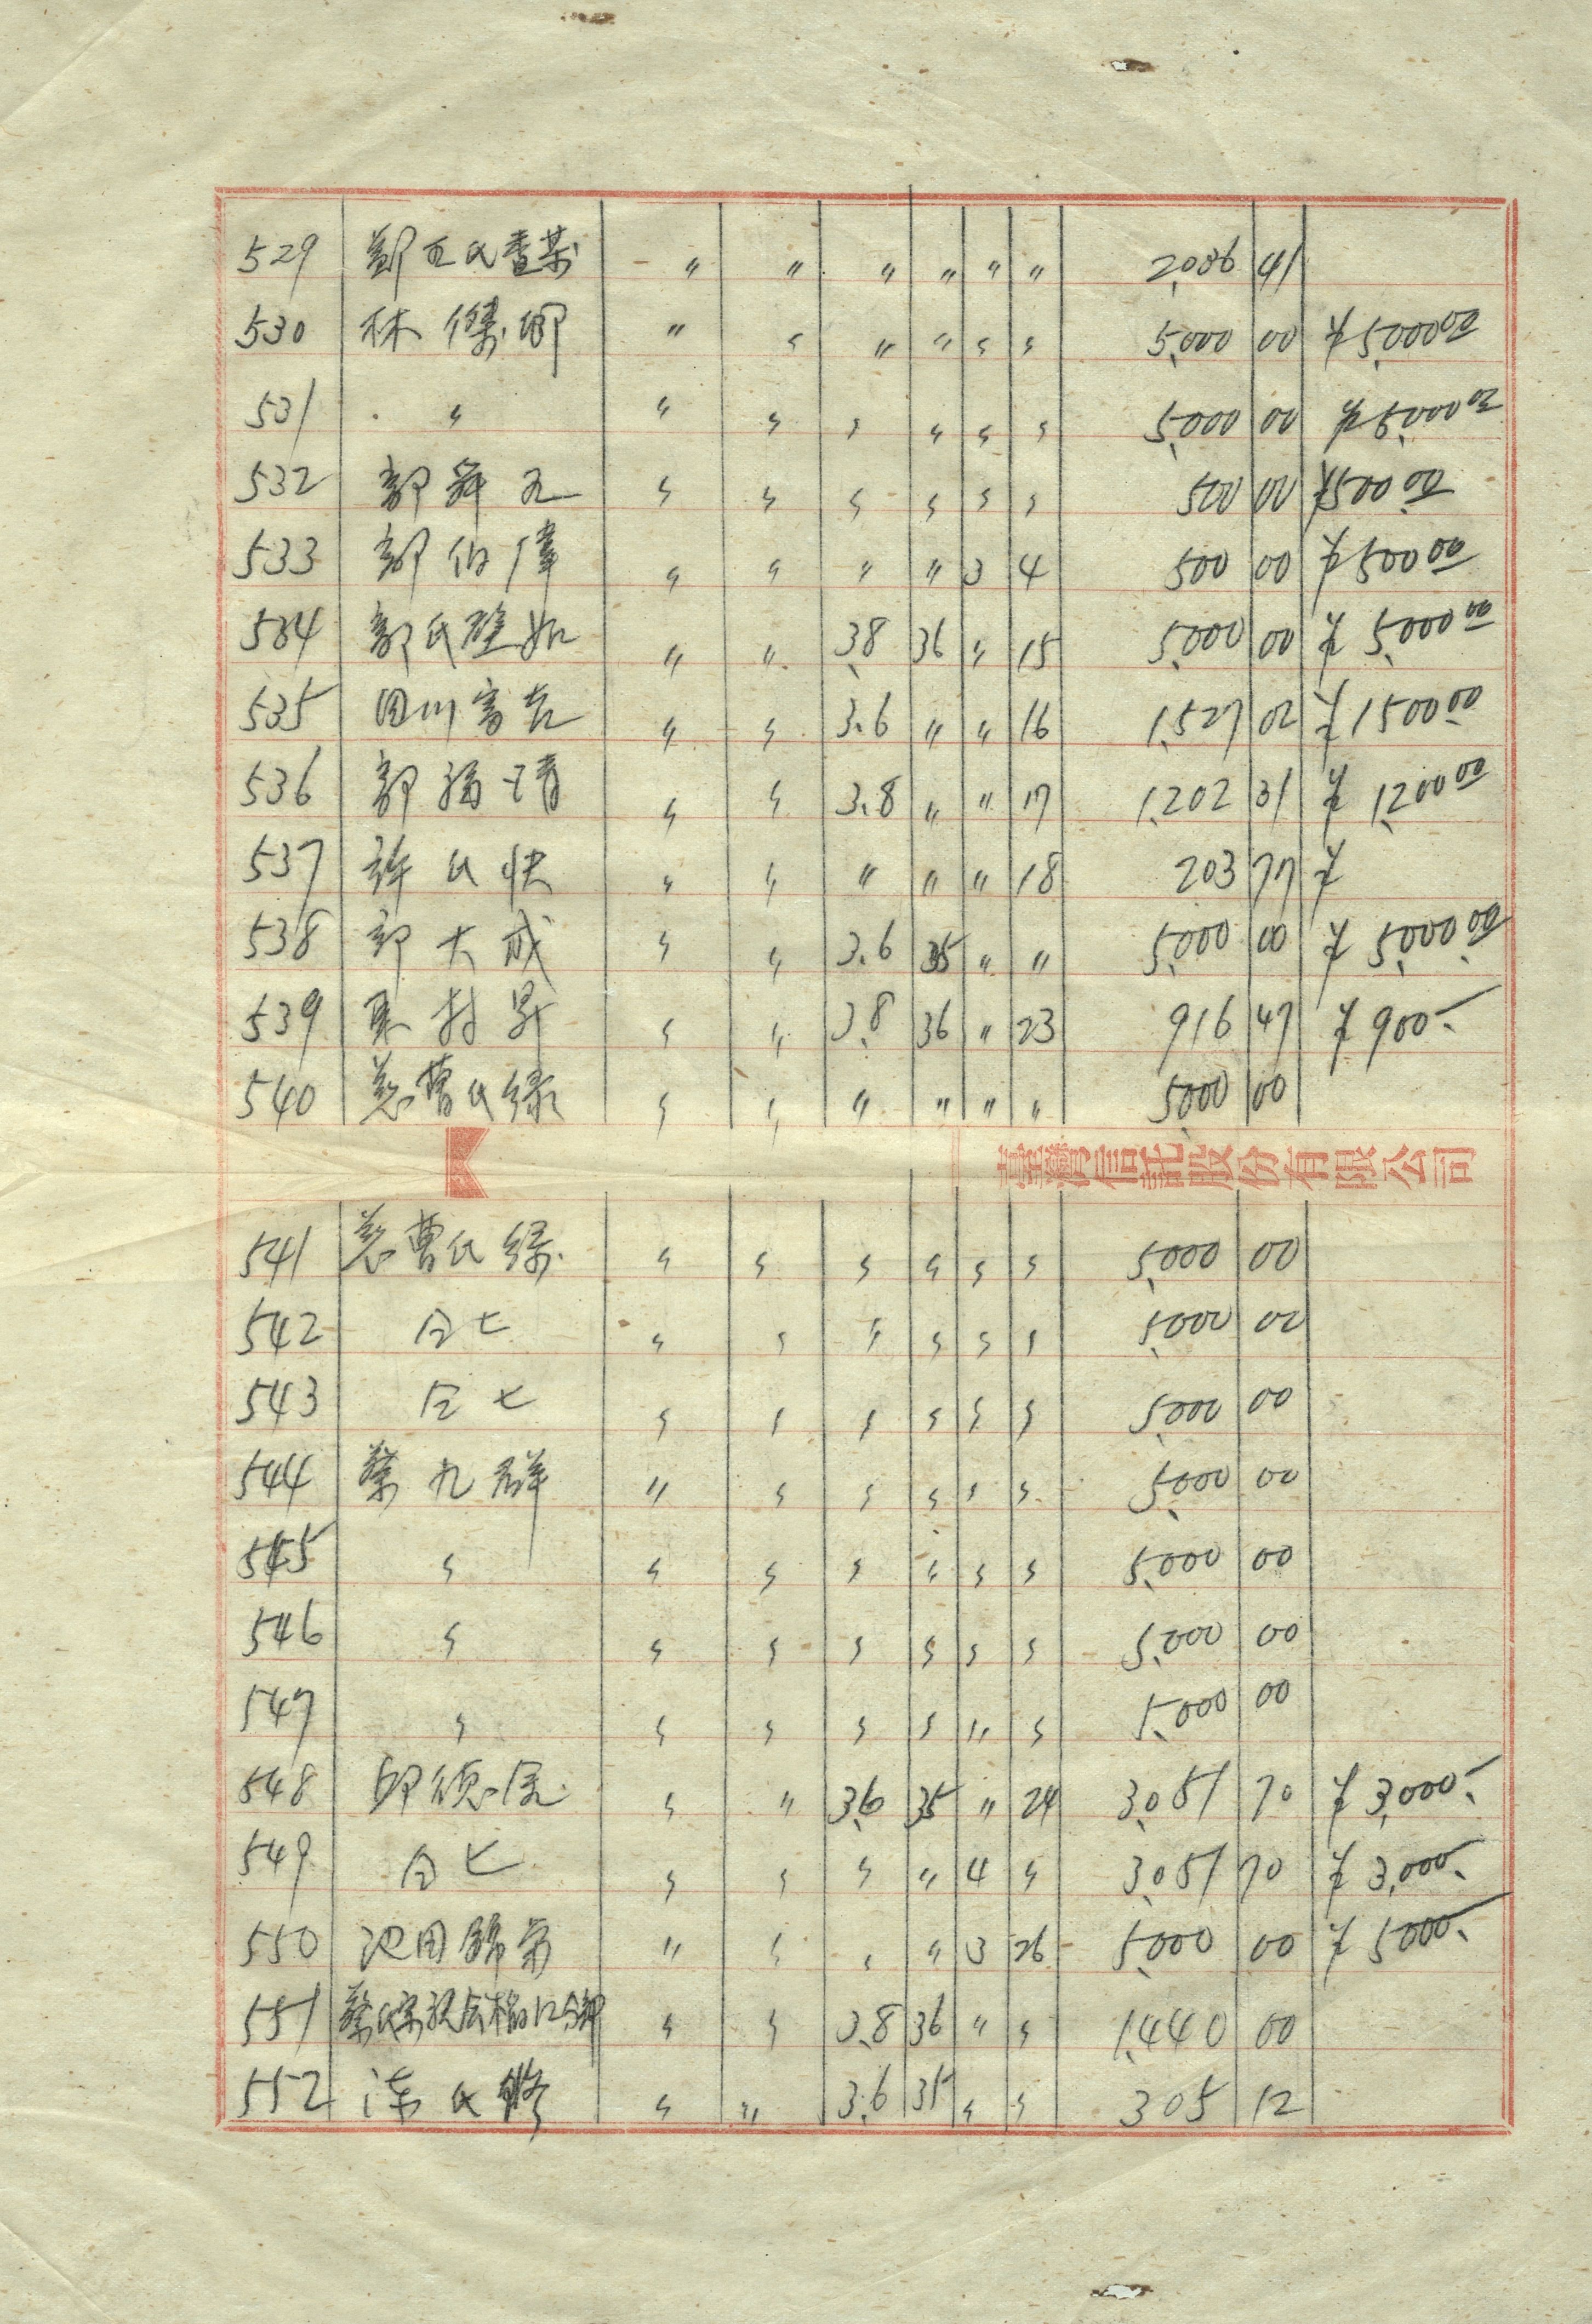 529 鄭王氏查某 〃 〃 〃 〃 〃 〃 2,036 41
530 林傑卿 〃 〃 〃 〃 〃 〃 5,000 00 ¥5,000.00
531 〃 〃 〃 〃 〃 〃 〃 5,000 00 ¥5,000.00
532 郭舜元 〃 〃 〃 〃 〃 〃 500 00 ¥500.00
533 郭伯偉 〃 〃 〃 〃 3 4 500 00 ¥500.00
534 郭氏 〃 〃 3.8 36 〃 15 5,000 00 ¥5,000.00
535 田川富 〃 〃 3.6 〃 〃 16 1,527 02 ¥1500.00
536 郭 〃 〃 3.8 〃 〃 17 1,202 31 ¥1,200.00
537 許氏快 〃 〃 〃 〃 〃 18 203 77 ¥
538 郭大成 〃 〃 3.6 35 〃 〃 5,000 00 ¥5,000.00
539 村昇 〃 〃 3.8 36 〃 23 916 47 ¥900-
540 曹氏緣 〃 〃 〃 〃 〃 〃 5,000 00
臺灣信託股份有限公司
541 曹氏緣 〃 〃 〃 〃 〃 〃 5,000 00
542 仝七 〃 〃 〃 〃 〃 〃 5,000 00
543 仝七 〃 〃 〃 〃 〃 〃 5,000 00
544 蔡九群 〃 〃 〃 〃 〃 〃 5,000 00
545 〃 〃 〃 〃 〃 〃 〃 5,000 00
546 〃 〃 〃 〃 〃 〃 〃 5,000 00
547 〃 〃 〃 〃 〃 〃 〃 5,000 00
548 〃 〃 3.6 35 〃 24 3,051 70 ¥3,000-
549 仝七 〃 〃 〃 〃 4 〃 3,051 70 ¥3,000-
550 池田 〃 〃 〃 〃 3 26 5,000 00 ¥5000-
551 蔡氏宗親会 〃 〃 3.8 36 〃 〃 1,440 00
552 陳氏 〃 〃 3.6 35 〃 〃 305 12